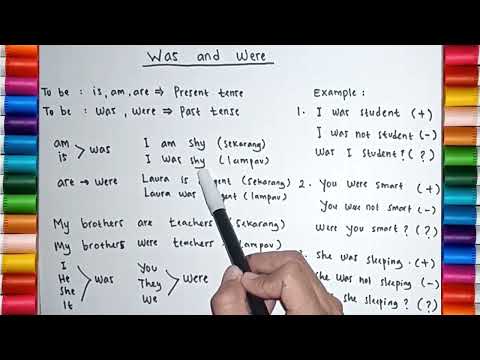 Was and Were
To be : is, am, are ⇒ Present tense
To be : was, were ⇒ Past tense
am
is > was
I am shy (sekarang)
I was shy (lampau)
are → were
Laura is (sekarang)
Laura was (lampau)
My brothers are teachers (sekarang)
My brothers were teachers (lampau)
I
He
She
It
> was
You
They
We
> were
Example :
1. I was student (+)
I was not student (-)
Was I student? (?)
2. You were smart (+)
You were not smart (-)
Were you smart? (?)
she was sleeping. (+)
was not sleeping (-)
she sleeping? (?)